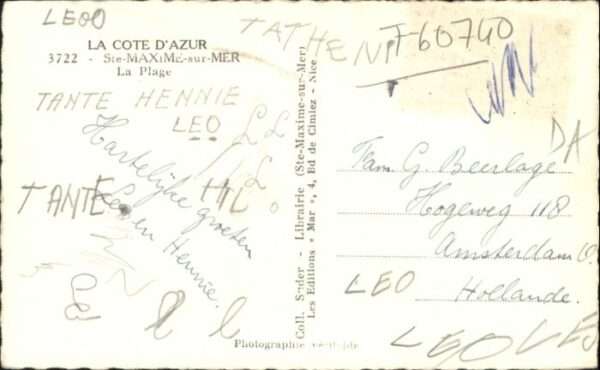 LEOO
TATHENI
F60740
LA COTE D'AZUR
3722 - Ste-MAXIME-sur-MER
La Plage
TANTE HENNIE
LEO
Hartelijke groeten
Leo en Hennie.
TANTE
Coll. Suder - Librairie (Ste-Maxime-sur-Mer)
Les Editions « Mar », 4, Bd de Cimiez - Nice
DA
Fam. G. Beerlage
Hogeweg 118
Amsterdam O.
Hollande.
LEO
LEO
Photographie véritable